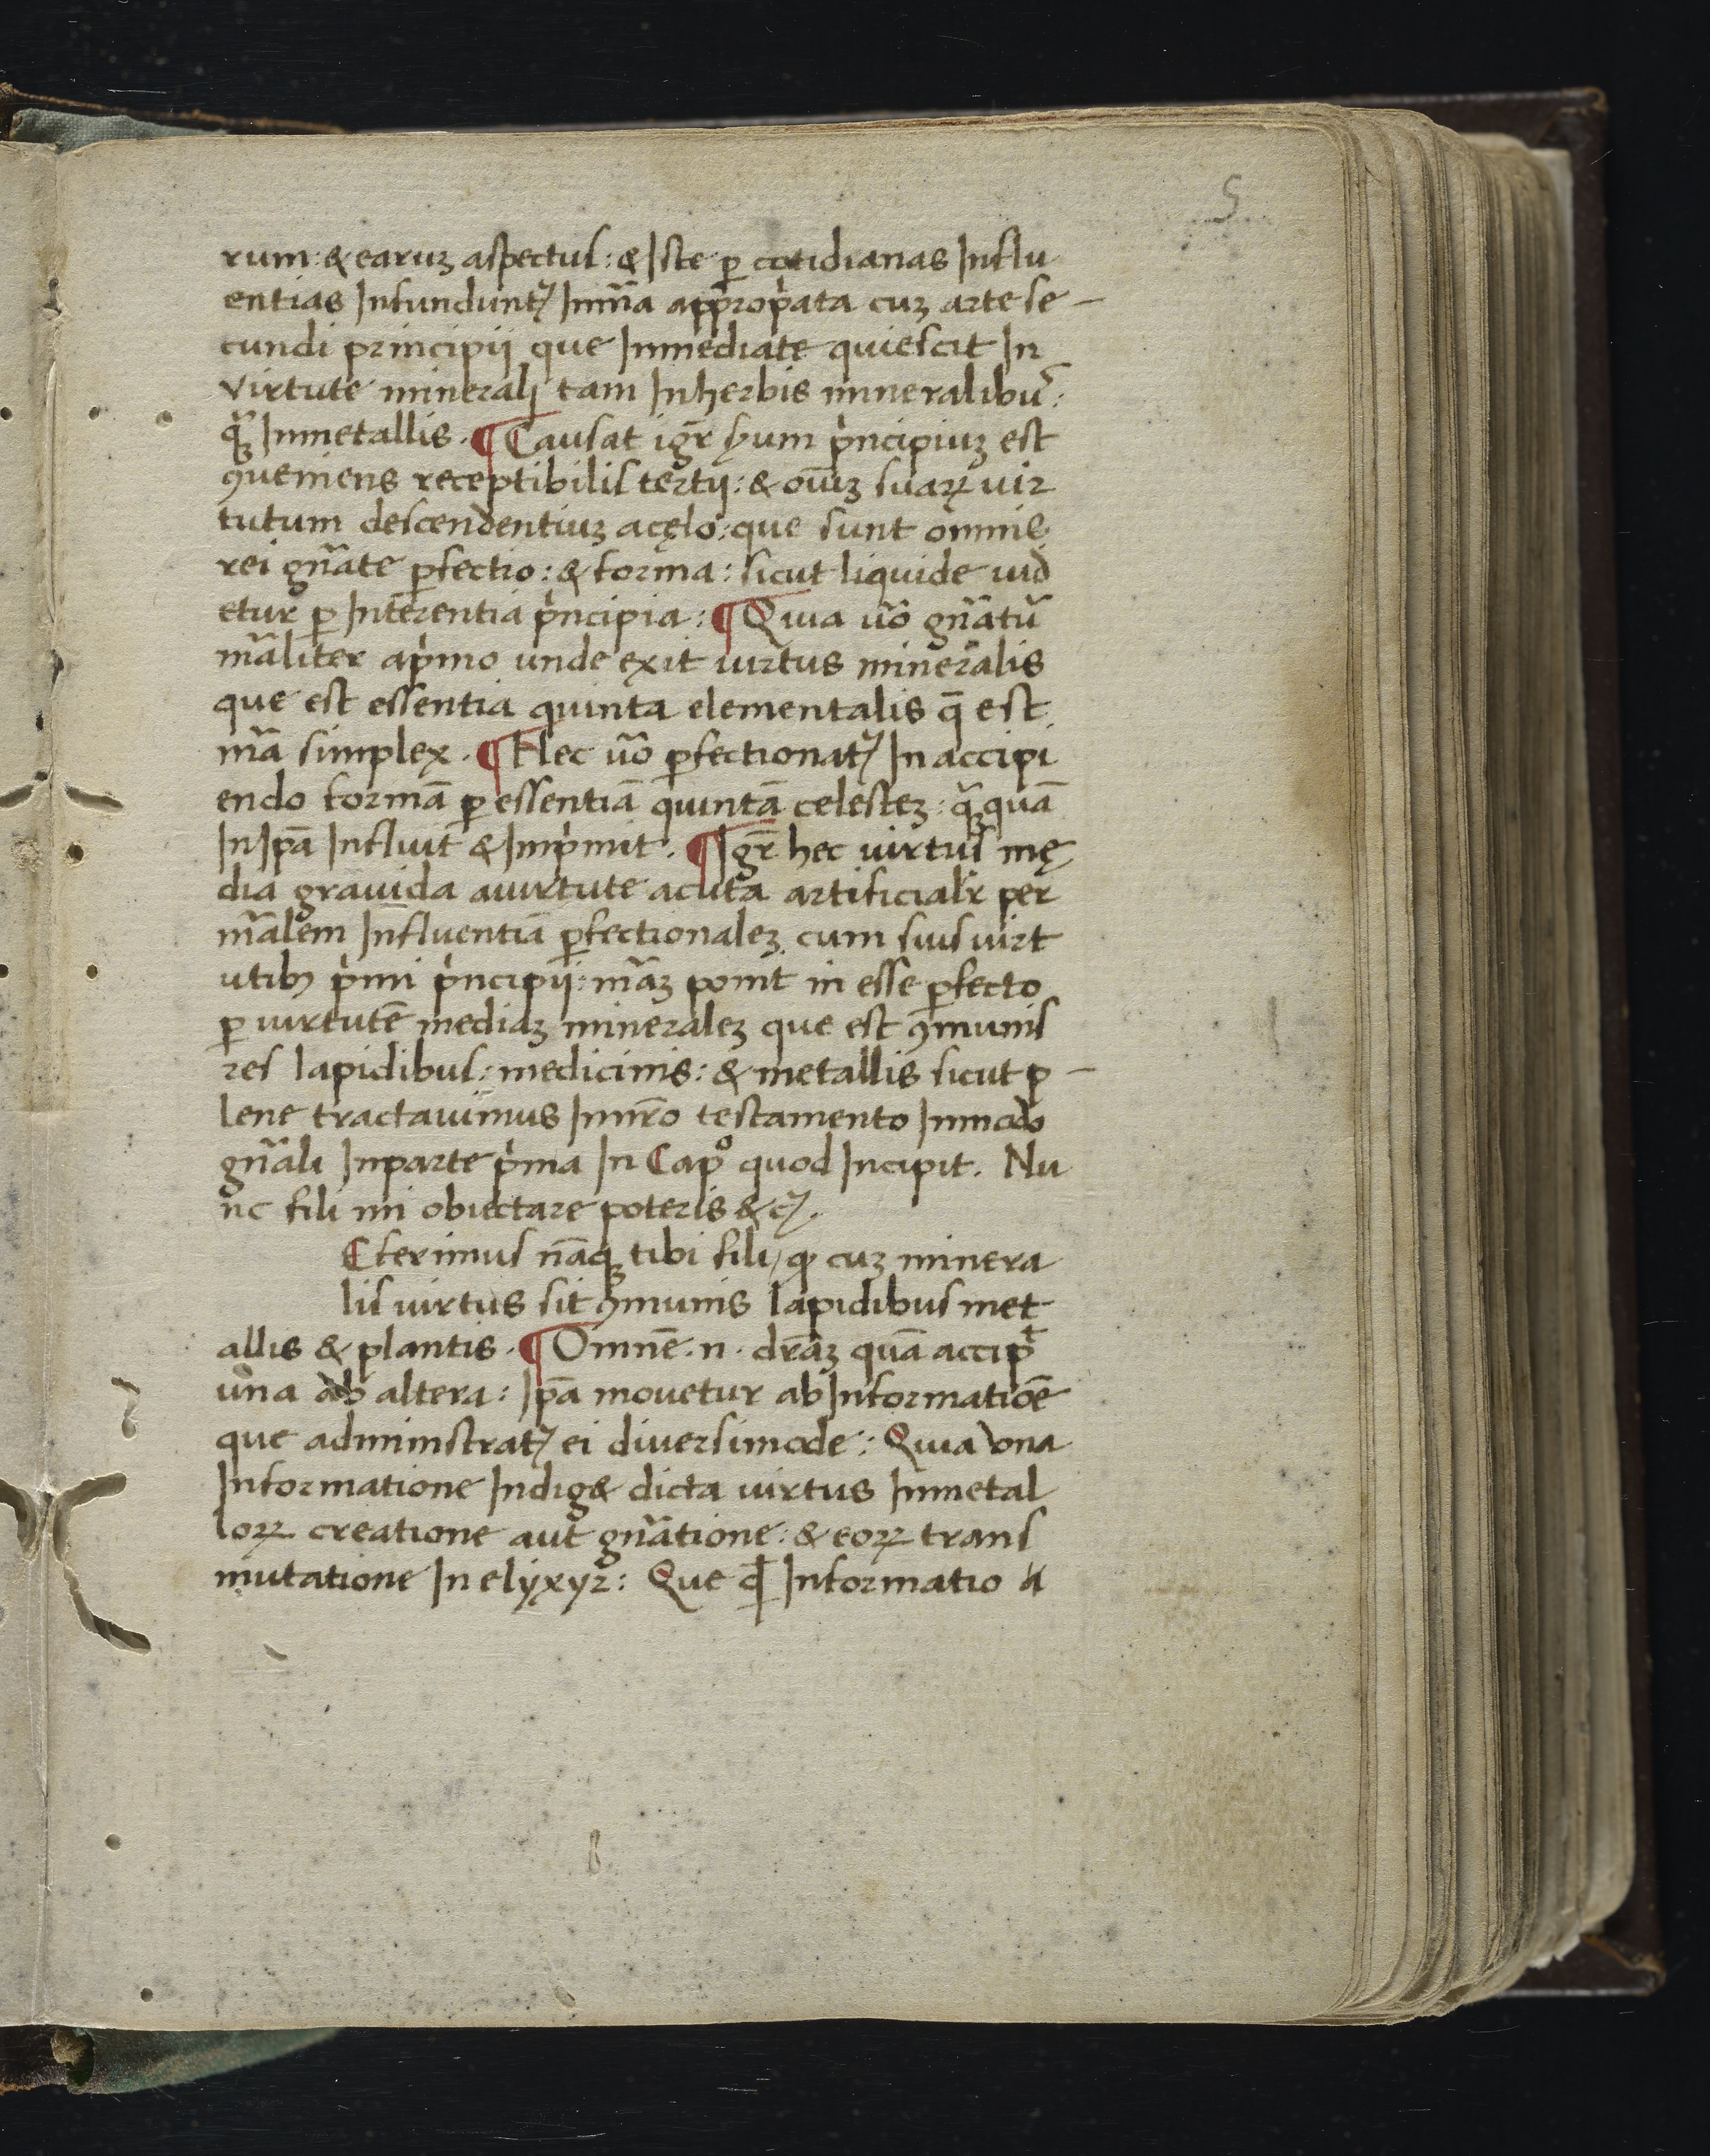 5
rum: & earuꝫ aspectus: & Iste ꝑ cotidianas Influ
entias Infundunt᷑ Inm̃a appropͥata cuꝫ arte se-
cundi principij que Inmediate quiescit In
virtute minerali tam Inherbis mineralibus:
ꝙ̃ Inmetallis. ¶ Causat igr̃ hum pͥncipiuꝫ est
ꝯueniens receptibilis tertij: & om̄iꝫ suaꝝ uir
tutum descendentiuꝫ acęlo: que sunt omnis
rei gñate ꝑfectio: & forma: sicut liquide uid
etur ꝑ Inferentia pͥncipia: ¶ Quia ũo gñatũ
mãliter apͥmo unde exit uirtus mineralis
que est essentia quinta elementalis q̄ est
m̃a simplex. ¶ Hec ũo ꝑfectionat᷑ In accipi
endo formā ꝑ essentiā quintā celesteꝫ: ꝙ̃quā
In Ip̄ā Influit & Impͥmit. ¶ Igr̃ hec uirtus mę
dia grauida auirtute acuta artificialr̃ per
mãlem Influentiā ꝑfectionaleꝫ cum suis uirt
utibꝰ pͥmi pͥncipij: m̃aꝫ ponit in esse ꝑfecto
ꝑ uirtutē mediaꝫ mineraleꝫ que est ꝯmunis
res lapidibus: medicinis: & metallis sicut p-
lene tractauimus Innr̄o testamento Inmodo
gñali Inparte pͥma In Capͦ quod Incipit. Nu
nc fili mi obiectare poteris &c᷑.
Cferimus nāqꝫ tibi fili, ꝙ cuꝫ minera
lis uirtus sit ꝯmunis lapidibus met
allis & plantis. ¶ Omnē .n. dr̄āꝫ quā accipͭ
una ab altera: Ip̄a mouetur ab Informatiōe
que administrat᷑ ei diuersimode: Quia una
Informatione Indig& dicta uirtus Inmetal
loꝝ creatione aut gñatione: & eoꝝ trans
mutatione In elyxyr: Que qͥdē Informatio a